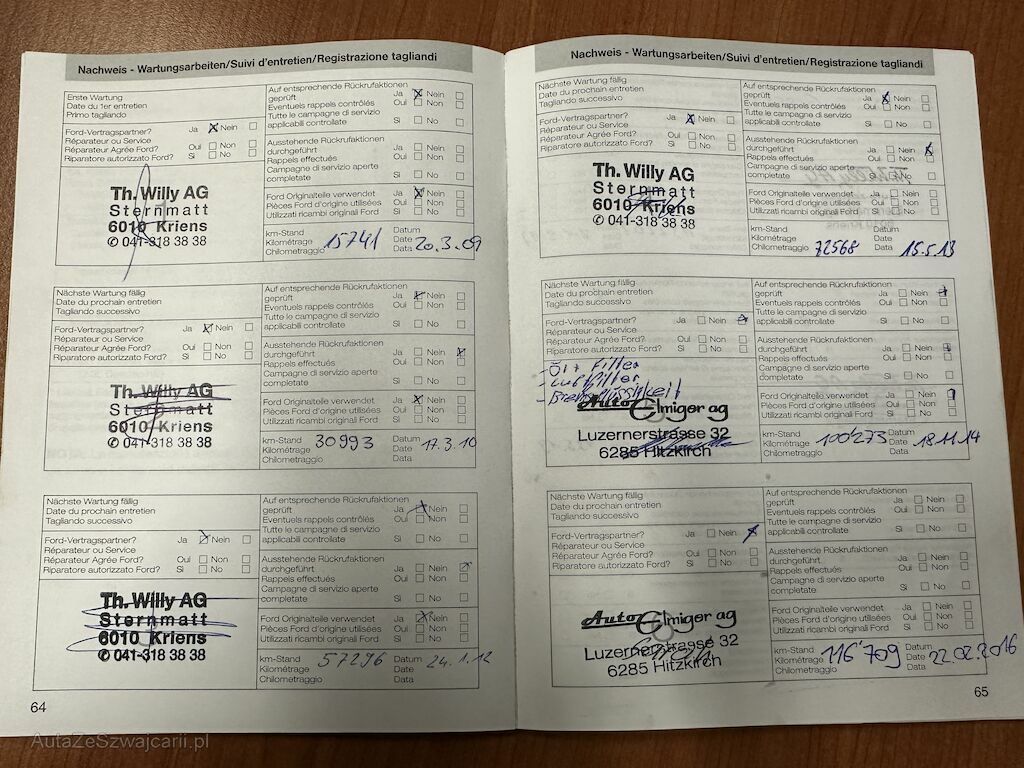 Nachweis - Wartungsarbeiten/Suivi d'entretien/Registrazione tagliandi
Erste Wartung
Date du 1er entretien
Primo tagliando
Auf entsprechende Rückrufaktionen
geprüft Ja Nein
Eventuels rappels contrôlés Oui Non
Tutte le campagne di servizio
applicabili controllate Si No
Ford-Vertragspartner? Ja Nein
Réparateur ou Service
Réparateur Agrée Ford? Oui Non
Riparatore autorizzato Ford? Si No
Ausstehende Rückrufaktionen
durchgeführt Ja Nein
Rappels effectués Oui Non
Campagne di servizio aperte
completate Si No
Th. Willy AG
Sternmatt
6010 Kriens
✆ 041-318 38 38
Ford Originalteile verwendet Ja Nein
Pièces Ford d'origine utilisées Oui Non
Utilizzati ricambi originali Ford Si No
km-Stand
Kilométrage
Chilometraggio
15741
Datum
Date
Data
20.3.09
Nächste Wartung fällig
Date du prochain entretien
Tagliando successivo
Auf entsprechende Rückrufaktionen
geprüft Ja Nein
Eventuels rappels contrôlés Oui Non
Tutte le campagne di servizio
applicabili controllate Si No
Ford-Vertragspartner? Ja Nein
Réparateur ou Service
Réparateur Agrée Ford? Oui Non
Riparatore autorizzato Ford? Si No
Ausstehende Rückrufaktionen
durchgeführt Ja Nein
Rappels effectués Oui Non
Campagne di servizio aperte
completate Si No
Th. Willy AG
Sternmatt
6010 Kriens
✆ 041-318 38 38
Ford Originalteile verwendet Ja Nein
Pièces Ford d'origine utilisées Oui Non
Utilizzati ricambi originali Ford Si No
km-Stand
Kilométrage
Chilometraggio
30993
Datum
Date
Data
17.3.10
Nächste Wartung fällig
Date du prochain entretien
Tagliando successivo
Auf entsprechende Rückrufaktionen
geprüft Ja Nein
Eventuels rappels contrôlés Oui Non
Tutte le campagne di servizio
applicabili controllate Si No
Ford-Vertragspartner? Ja Nein
Réparateur ou Service
Réparateur Agrée Ford? Oui Non
Riparatore autorizzato Ford? Si No
Ausstehende Rückrufaktionen
durchgeführt Ja Nein
Rappels effectués Oui Non
Campagne di servizio aperte
completate Si No
Th. Willy AG
Sternmatt
6010 Kriens
✆ 041-318 38 38
Ford Originalteile verwendet Ja Nein
Pièces Ford d'origine utilisées Oui Non
Utilizzati ricambi originali Ford Si No
km-Stand
Kilométrage
Chilometraggio
57296
Datum
Date
Data
24.1.12
64
Nachweis - Wartungsarbeiten/Suivi d'entretien/Registrazione tagliandi
Nächste Wartung fällig
Date du prochain entretien
Tagliando successivo
Auf entsprechende Rückrufaktionen
geprüft Ja Nein
Eventuels rappels contrôlés Oui Non
Tutte le campagne di servizio
applicabili controllate Si No
Ford-Vertragspartner? Ja Nein
Réparateur ou Service
Réparateur Agrée Ford? Oui Non
Riparatore autorizzato Ford? Si No
Ausstehende Rückrufaktionen
durchgeführt Ja Nein
Rappels effectués Oui Non
Campagne di servizio aperte
completate Si No
Th. Willy AG
Sternmatt
6010 Kriens
✆ 041-318 38 38
Ford Originalteile verwendet Ja Nein
Pièces Ford d'origine utilisées Oui Non
Utilizzati ricambi originali Ford Si No
km-Stand
Kilométrage
Chilometraggio
72568
Datum
Date
Data
15.5.13
Nächste Wartung fällig
Date du prochain entretien
Tagliando successivo
Auf entsprechende Rückrufaktionen
geprüft Ja Nein
Eventuels rappels contrôlés Oui Non
Tutte le campagne di servizio
applicabili controllate Si No
Ford-Vertragspartner? Ja Nein
Réparateur ou Service
Réparateur Agrée Ford? Oui Non
Riparatore autorizzato Ford? Si No
Ausstehende Rückrufaktionen
durchgeführt Ja Nein
Rappels effectués Oui Non
Campagne di servizio aperte
completate Si No
- Öl + Filter
- Luftfilter
- Bremsflüssigkeit
Auto Elmiger ag
Luzernerstrasse 32
6285 Hitzkirch
Ford Originalteile verwendet Ja Nein
Pièces Ford d'origine utilisées Oui Non
Utilizzati ricambi originali Ford Si No
km-Stand
Kilométrage
Chilometraggio
100'273
Datum
Date
Data
18.11.14
Nächste Wartung fällig
Date du prochain entretien
Tagliando successivo
Auf entsprechende Rückrufaktionen
geprüft Ja Nein
Eventuels rappels contrôlés Oui Non
Tutte le campagne di servizio
applicabili controllate Si No
Ford-Vertragspartner? Ja Nein
Réparateur ou Service
Réparateur Agrée Ford? Oui Non
Riparatore autorizzato Ford? Si No
Ausstehende Rückrufaktionen
durchgeführt Ja Nein
Rappels effectués Oui Non
Campagne di servizio aperte
completate Si No
Auto Elmiger ag
Luzernerstrasse 32
6285 Hitzkirch
Ford Originalteile verwendet Ja Nein
Pièces Ford d'origine utilisées Oui Non
Utilizzati ricambi originali Ford Si No
km-Stand
Kilométrage
Chilometraggio
116'709
Datum
Date
Data
22.02.2016
65
AutaZeSzwajcarii.pl